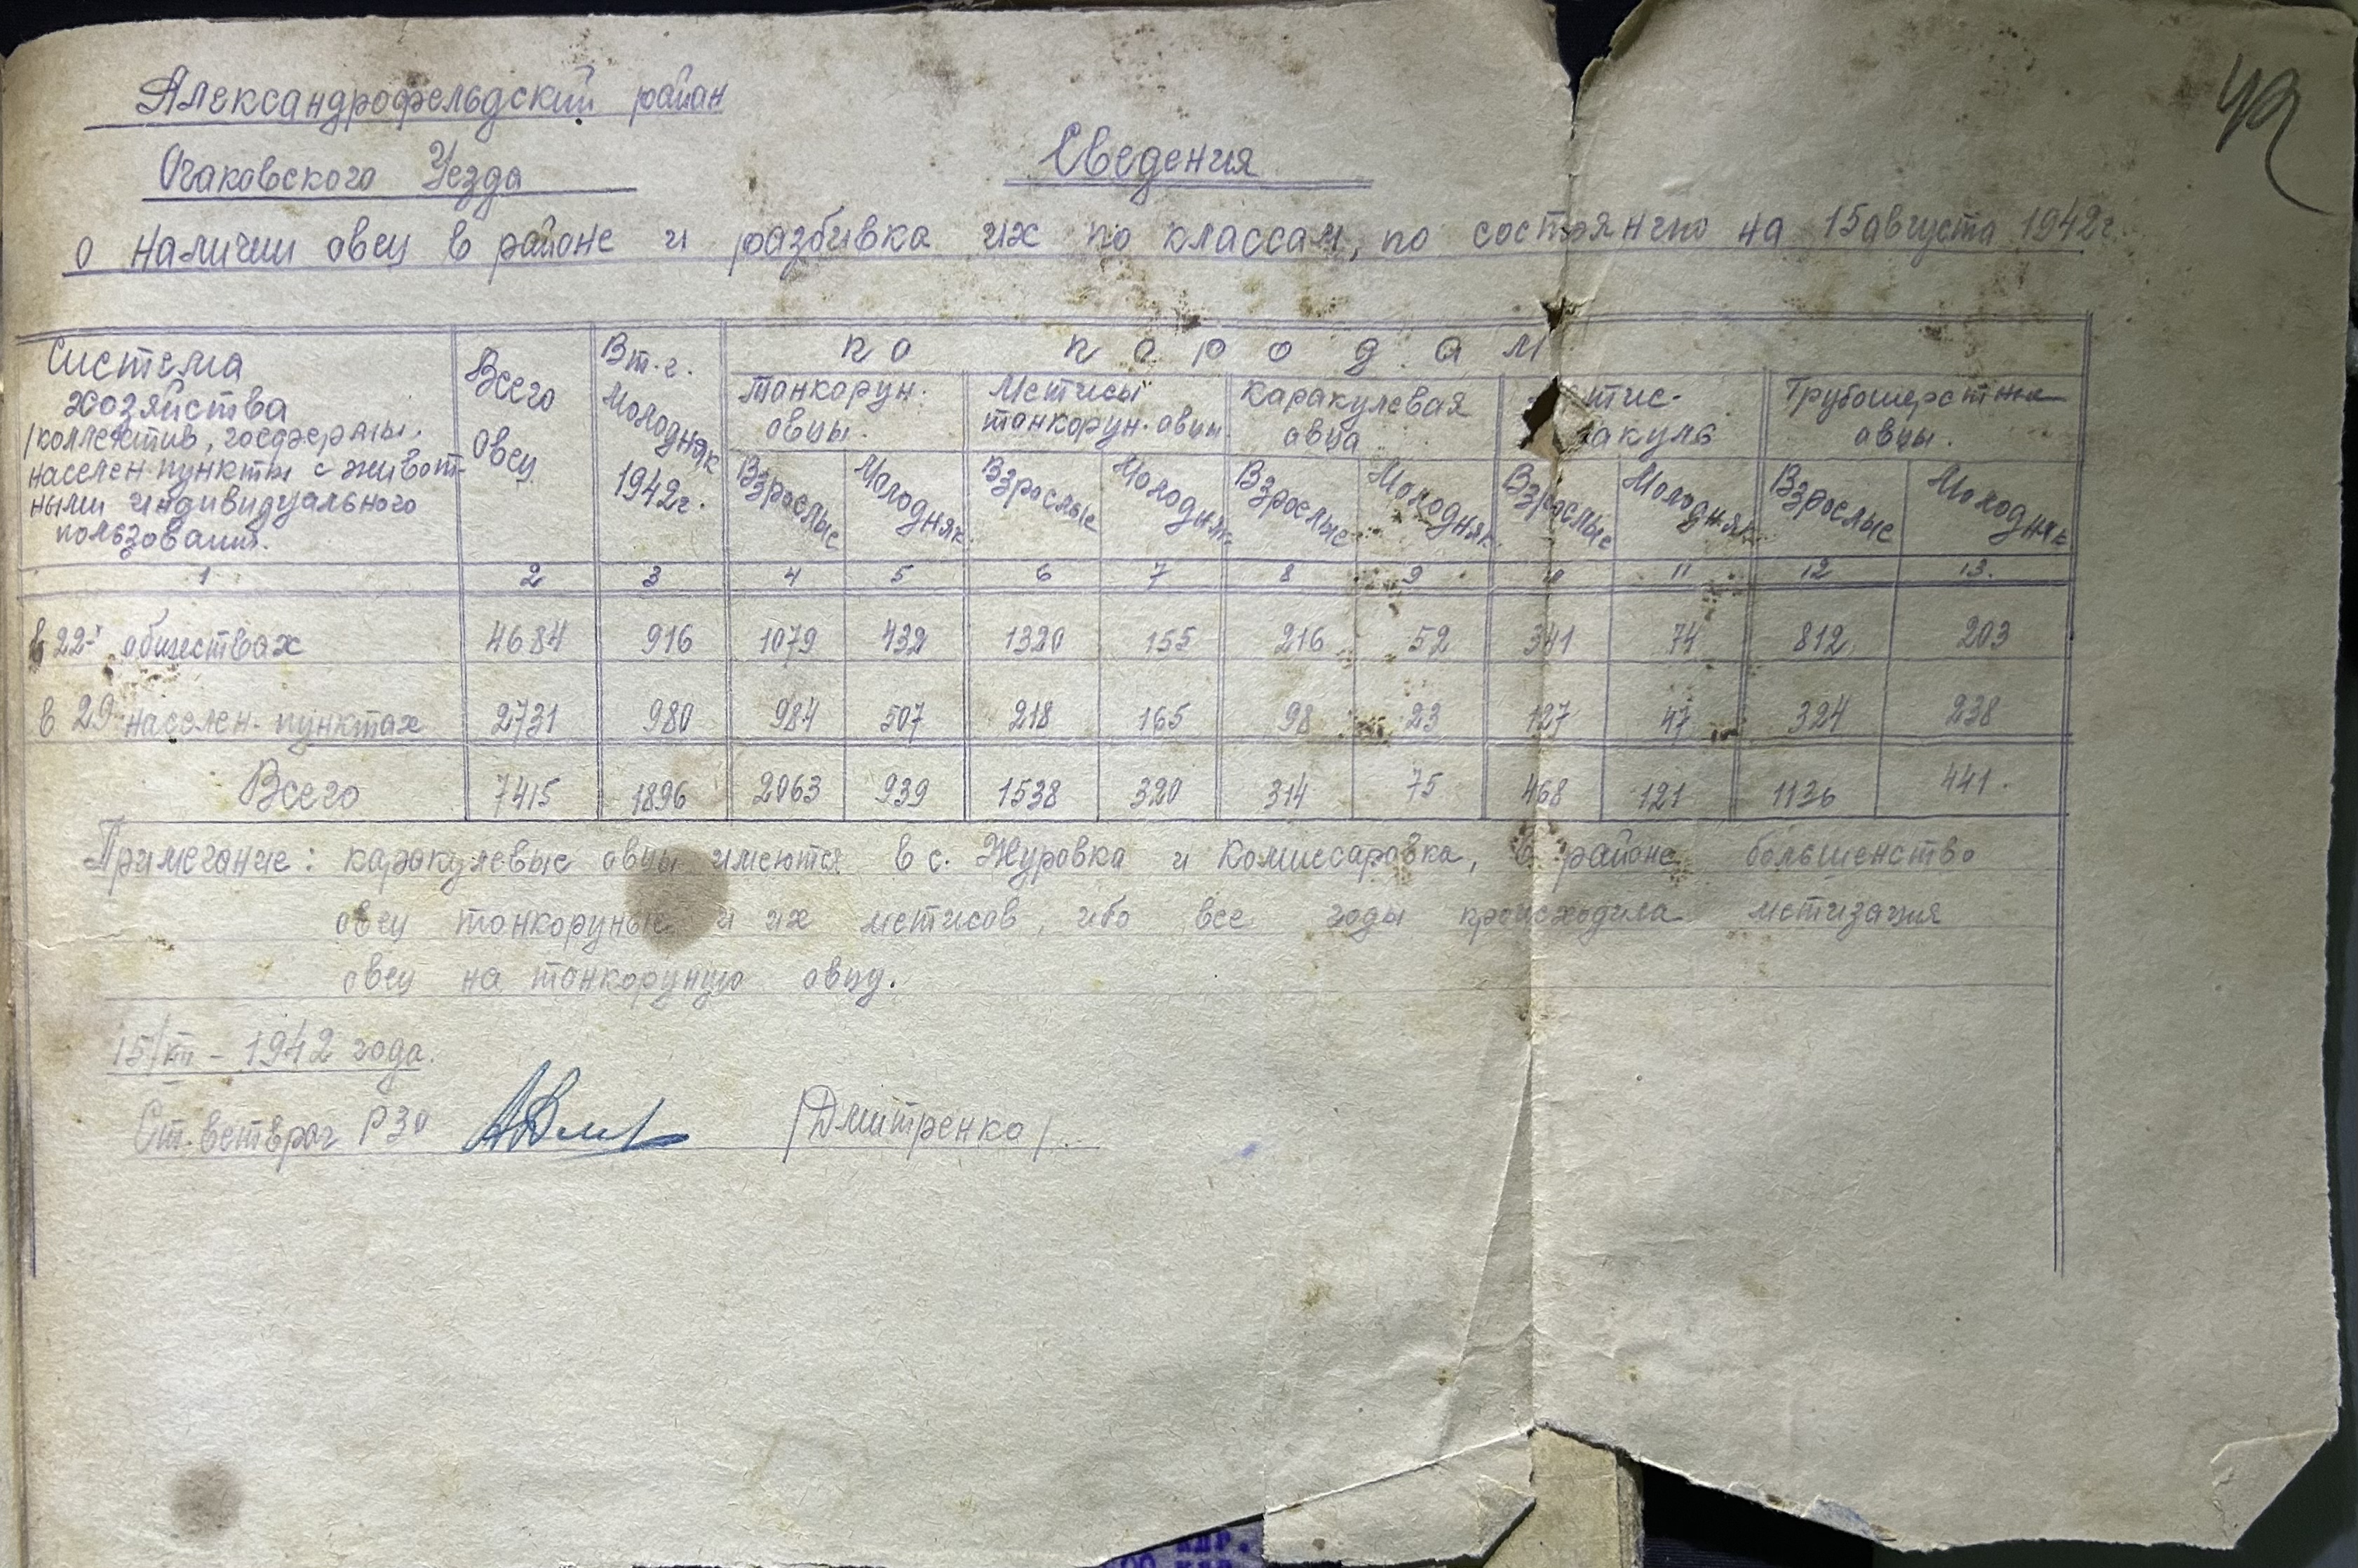 42
Александрофельдский район
Очаковского Уезда
Сведения
о наличии овец в районе и разбивка их по классам, по состоянию на 15 августа 1942г.
Система хозяйства /коллектив, госфермы, населен. пункты с живот-ными индивидуального пользования.
Всего овец
В т.г. молодняк 1942г.
по породам
Тонкорун. овцы.
Метисы тонкорун. овцы.
Каракулевая овца
тис- акуль
Грубошерстные овцы.
Взрослые Молодняк Взрослые Молодняк Взрослые Молодняк Взрослые Молодняк Взрослые Молодняк
1 2 3 4 5 6 7 8 9 10 11 12 13.
в 22-х обществах 4684 916 1079 432 1320 155 216 52 341 74 812 203
в 29 населен. пунктах 2731 980 984 507 218 165 98 23 127 47 324 238
Всего 7415 1896 2063 939 1538 320 314 75 468 121 1136 441.
Примечание: каракулевые овцы имеются в с. Журовка и Комиссаровка, в районе большенство
овец тонкоруные и их метисов, ибо все годы происходила метизация
овец на тонкоруную овцу.
15/ – 1942 года.
Ст. ветврач РЗО /Дмитренко/.